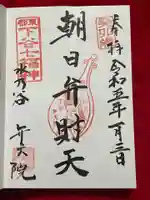 奉拝
令和五年一月三日
朝日弁財天
東都
下谷七福神
水が谷
弁天院